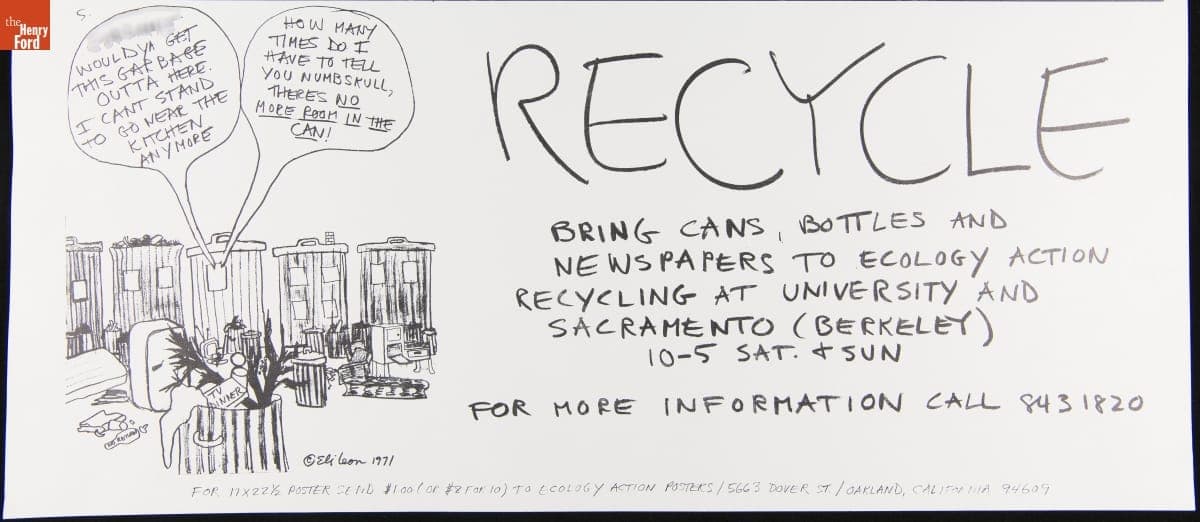 the
Henry
Ford
S.
WOULDYA GET
THIS GARBAGE
OUTTA HERE.
I CANT STAND
TO GO NEAR THE
KITCHEN
ANYMORE
HOW MANY
TIMES DO I
HAVE TO TELL
YOU NUMBSKULL,
THERES NO
MORE ROOM IN THE
CAN!
RECYCLE
BRING CANS, BOTTLES AND
NEWSPAPERS TO ECOLOGY ACTION
RECYCLING AT UNIVERSITY AND
SACRAMENTO (BERKELEY)
10-5 SAT. + SUN
FOR MORE INFORMATION CALL 843 1820
TV
DINNER
NO RETURN
©Eli Leon 1971
FOR 17X22½ POSTER SEND $1.00 (OR $2 FOR 10) TO ECOLOGY ACTION POSTERS / 5663 DOVER ST. / OAKLAND, CALIFORNIA 94609